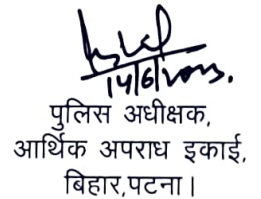 14/6/2023.
पुलिस अधीक्षक,
आर्थिक अपराध इकाई,
बिहार,पटना।